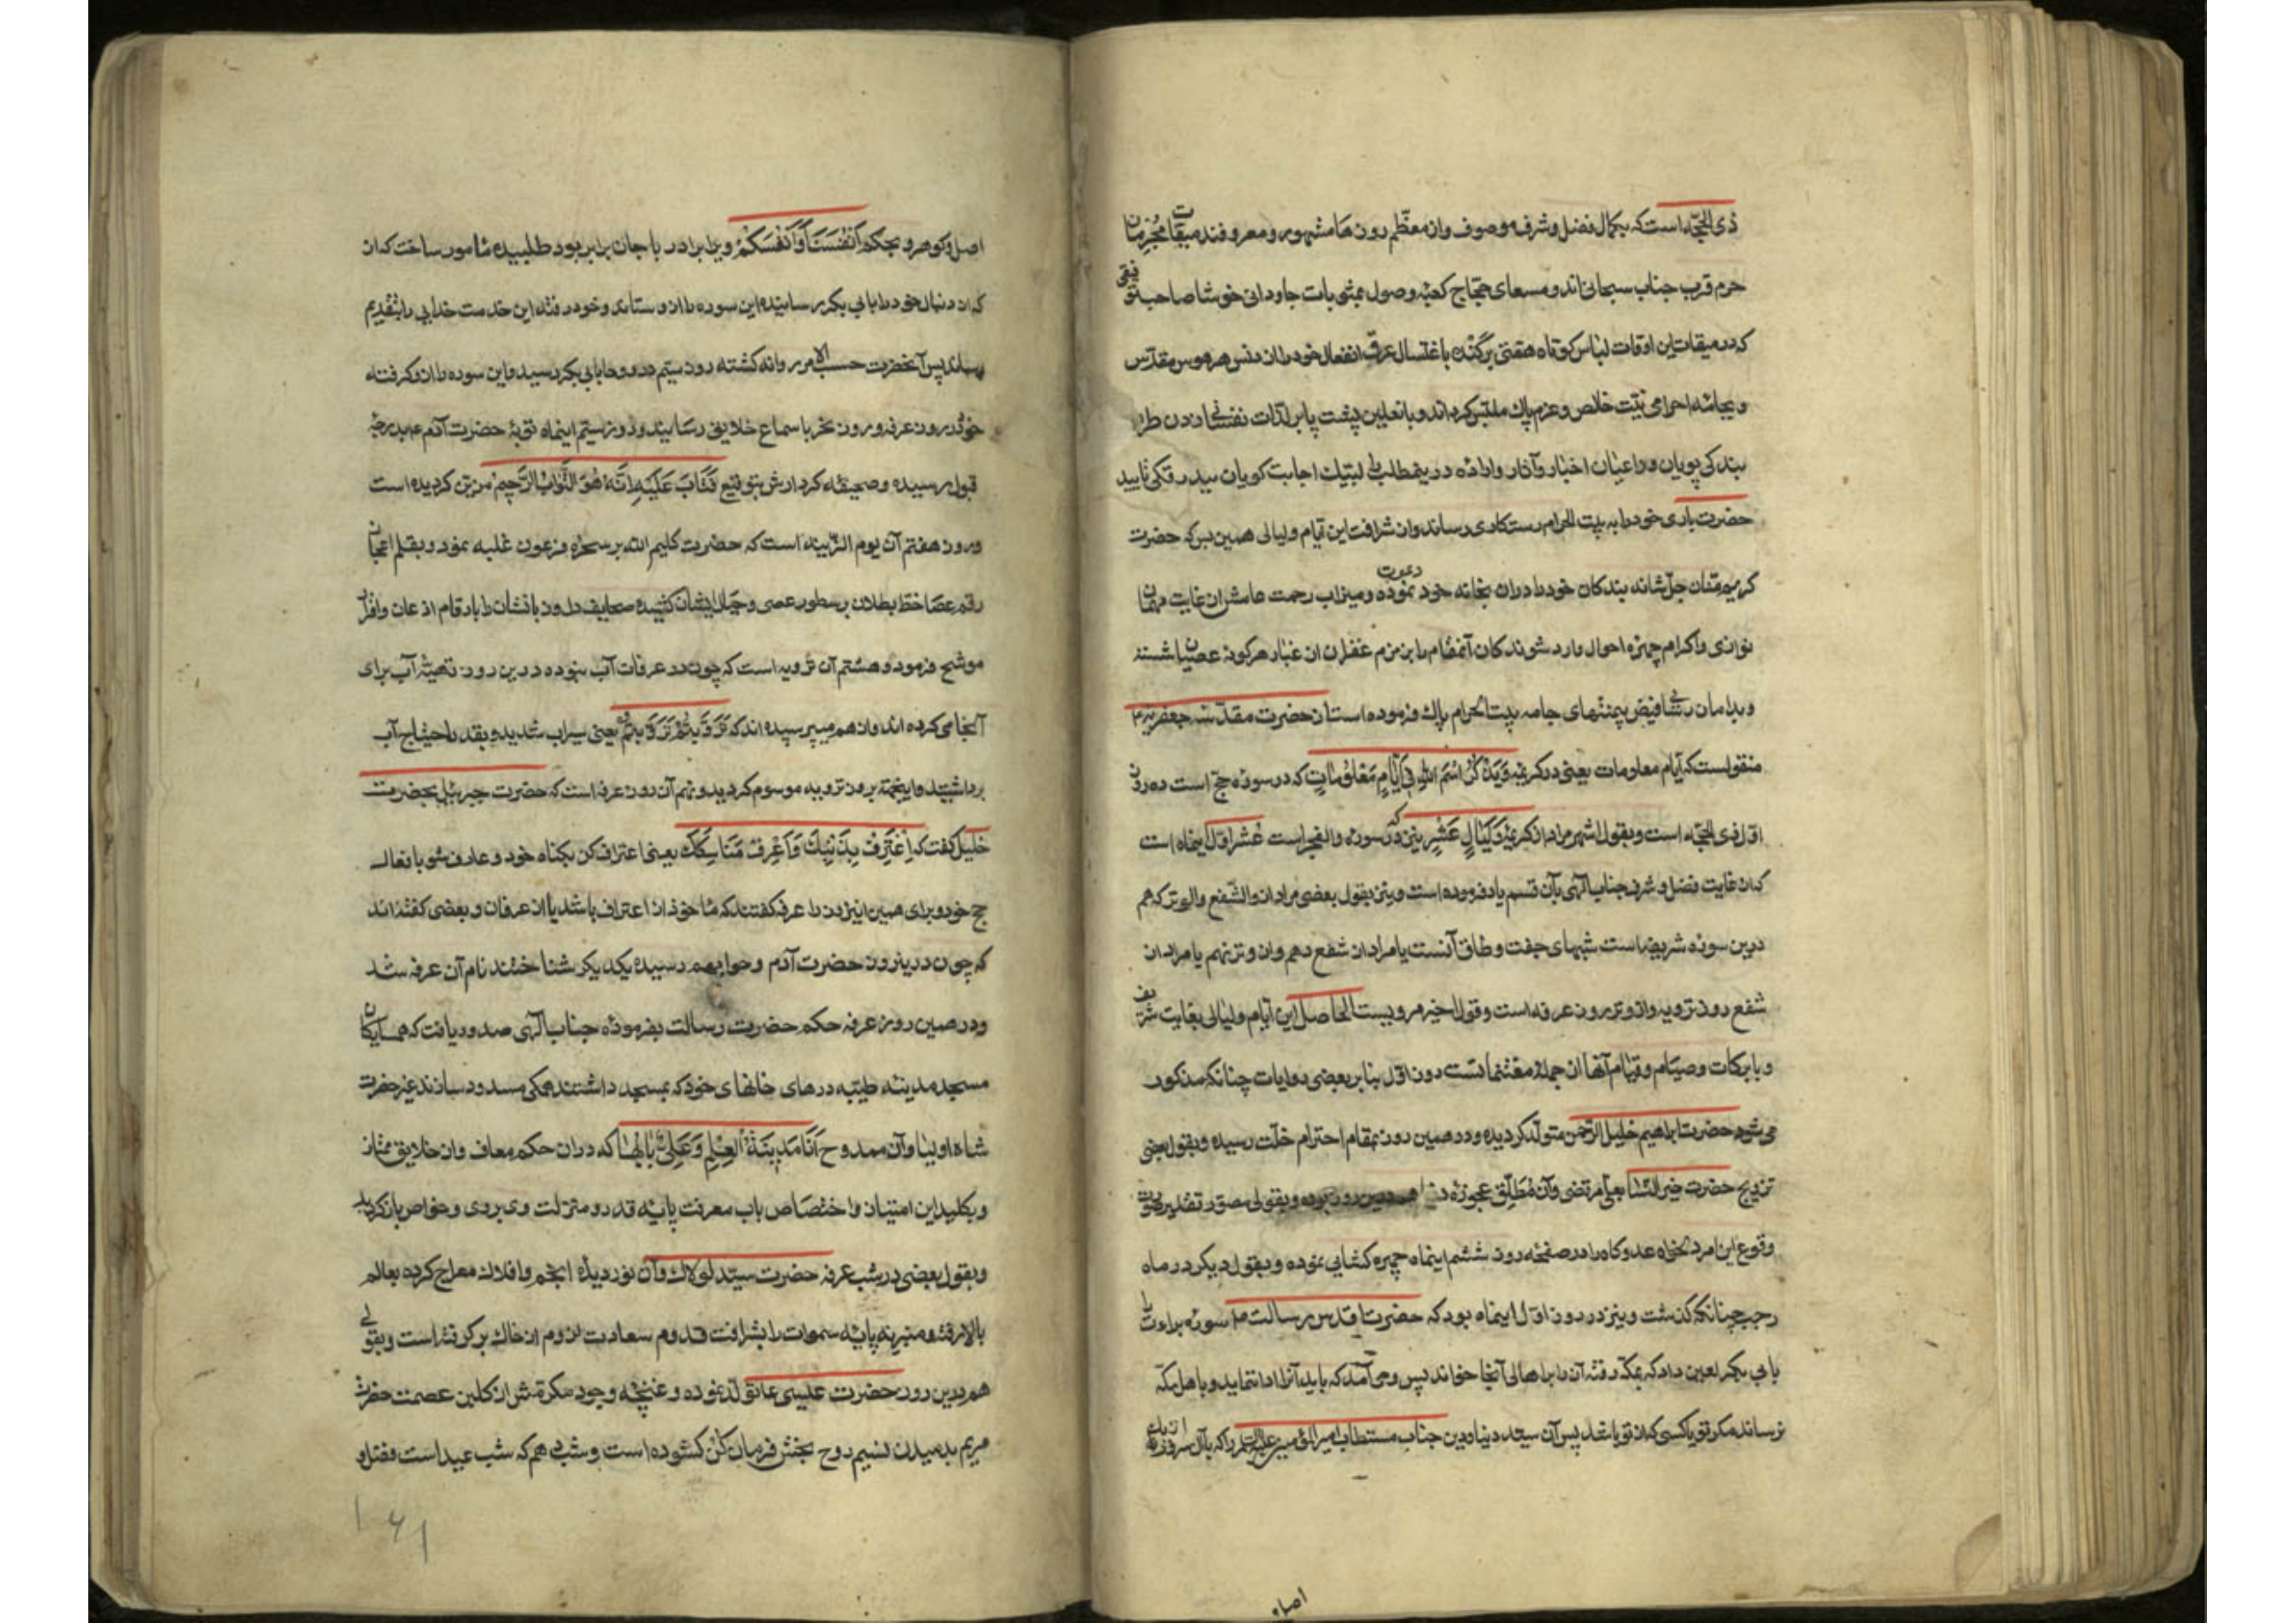 ذی الحجّه است که بکمال فضل و شرف موصوف و از معظّم روزها مشهور و معروفند میقات محرمان
حرم قرب جناب سبحانی اند و مسعای حجّاج کعبه وصول مثوبات جاودانی خوشا صاحب توفیقی
که در میقات این اوقات لباس کوتاه برکنده باغتسال عرق انفعال خود را از دنس هر هوس مقدّس
و بجامه احرام نیّت خالص و عزم پاک ملبّس کرداند و با نعلین پشت پا بر لذّات نفسانی زدن طرا
بندکی پویان و داعیان اخبار و آثار وارده در ینمطلب را لبّیک اجابت کویان ببدرقکی تأیید
حضرت باری خود را به بیت الحرام رستکاری رساند و از شرافت این ایّام و لیالی همین بس که حضرت
کریم منّان جلّ شانه بندکان خود را دران بخانه خود دعوت نموده و میزاب رحمت عامش از غایت مهمان
نوازی و اکرام چهره احوال وارد شوندکان آنمقام را بزمزم غفران از غبار هرکونه عصیان شسته
و بدامان فیض جامه بیت الحرام پاک فرموده است از حضرت مقدّسه جعفریّه ع
منقولست که ایّام معلومات یعنی در کریمه وَیَذْکُرُوا اسْمَ اللهِ فِی اَیَّامٍ مَعْلُومَاتٍ که در سوره حجّ است ده روز
اوّل ذی الحجّه است و بقول اشهر مراد از کریمه وَلَیَالٍ عَشْرٍ نیز که در سوره والفجر است عشر اوّل اینماه است
که از غایت فضل و شرف جناب الهی بآن قسم یاد فرموده است و نیز بقول بعضی مراد از والشّفع والوتر که هم
درین سوره شریفه است شبهای جفت و طاق آنست یا مراد از شفع دهم و از وتر نهم یا مراد از
شفع روز ترویه و از وتر روز عرفه است و قول اخیر مرویست الحاصل این ایّام و لیالی بغایت شریف
و با برکات و صیام و قیام آنها از جمله مغتنماتست روز اوّل بنا بر بعضی روایات چنانکه مذکور
می شود حضرت ابراهیم خلیل الرّحمن متولّد کردیده و در همین روز بمقام احترام خلّت رسیده و بقول بعضی
تزویج حضرت خیر النّسا بعلی مرتضی و آن مُطَلِّق عجوزه دنیا هم درین روز بوده و بقولی مصوّر تقدیر صورت
وقوع این امر دلخواه عدوکاه را در صفحه روز ششم اینماه چهره کشایی نموده و بقول دیکر در ماه
رجب چنانکه کذشت و نیز در روز اوّل اینماه بود که حضرت اقدس رسالت ص سوره براءت را
بابی بکر لعین داد که بمکّه رفته آن را بر اهالی آنجا خواند پس وحی آمد که باید آنرا ادا ننماید و باهل مکّه
نرساند مکر تو یا کسی که از تو باشد پس آن سیّد دنیا و دین جناب مستطاب امیر المؤمنین علیه السّلم را که بآن سرور
اصل
اصل و کوهر و بحکم اَنْفُسَنَا وَاَنْفُسَکُمْ ویرا برادر با جان برابر بود طلبیده مامور ساخت که از
که از دنبال خود را بابی بکر رسانیده این سوره را ازو ستاند و خود رفته این خدمت خدایی را بتقدیم
رساند پس آنحضرت حسب الامر روانه کشته روز سیّم در روحا بابی بکر رسید و این سوره را ازو کرفته
خود در روز عرفه و روز نحر باسماع خلایق رسانید و در روز سیّم اینماه توبهٔ حضرت آدم ع بدرجهٔ
قبول رسیده و صحیفه کردارش بتوقیع فَتَابَ عَلَیْهِ اِنَّهُ هُوَ التَّوَّابُ الرَّحِیمُ مزیّن کردیده است
و روز هفتم آن یوم الزّینه است که حضرت کلیم الله بر سحره فرعون غلبه نمود و بقلم اعجاز
رقم عصا خطّ بطلان بر سطور عصی و حبال ایشان کشیده صحایف دلهای ایشان را بارقام اذعان و اقرار
موشّح فرمود و هشتم آن ترویه است که چون در عرفات آب نبوده درین روز تهیّهٔ آب برای
آنجا می کرده اند و از هم میپرسیده اند که تَرَوَّیْتُمْ تَرَوَّیْتُمْ یعنی سیراب شدید و بقدر احتیاج آب
برداشتید و باینجهة بروز ترویه موسوم کردید و نهم آن روز عرفه است که حضرت جبرئیل بحضرت
خلیل کفت که اِعْتَرِفْ بِذَنْبِکَ وَاَعْرِفْ مَنَاسِکَکَ یعنی اعتراف کن بکناه خود و عارف شو بافعال
حجّ خود و برای همین اینروز را عرفه کفتند که ماخوذ از اعتراف باشد یا از عرفان و بعضی کفته اند
که چون درینروز حضرت آدم و حوا بهم رسیده یکدیکر شناختند نام آن عرفه شد
و در همین روز عرفه حکم حضرت رسالت بفرموده جناب الهی صدور یافت که همسایکان
مسجد مدینه طیّبه درهای خانهای خود که بمسجد داشتند همکی مسدود سازند غیر حضرت
شاه اولیا و آن ممدوح اَنَا مَدِینَةُ الْعِلْمِ وَعَلِیٌّ بَابُهَا که دران حکم معاف و از خلایق ممتاز
و بکلید این امتیاز و اختصاص باب معرفت پایه قدر و منزلت وی بروی و خواص باز کردید
و بقول بعضی در شب عرفه حضرت سیّد لولاک و آن نور دیدهٔ انجم و افلاک معراج کرده بعالم
بالا رفته و منبر نه پایه سموات را بشرافت قدوم سعادت لزوم از خاک برکرفته است و بقولی
هم درین روز حضرت عیسی ع تولّد نموده و غنچه وجود مکرمتش از کلبن عصمت حضرت
مریم بدمیدن نسیم روح بخش فرمان کُنْ کشوده است و شب دهم که شب عید است فضل و
۱۶۱